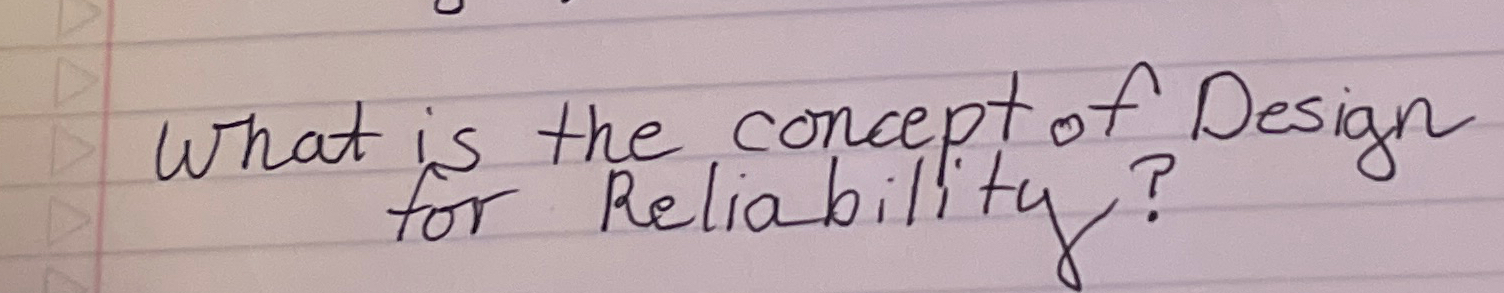 What is the concept of Design
for Reliability?